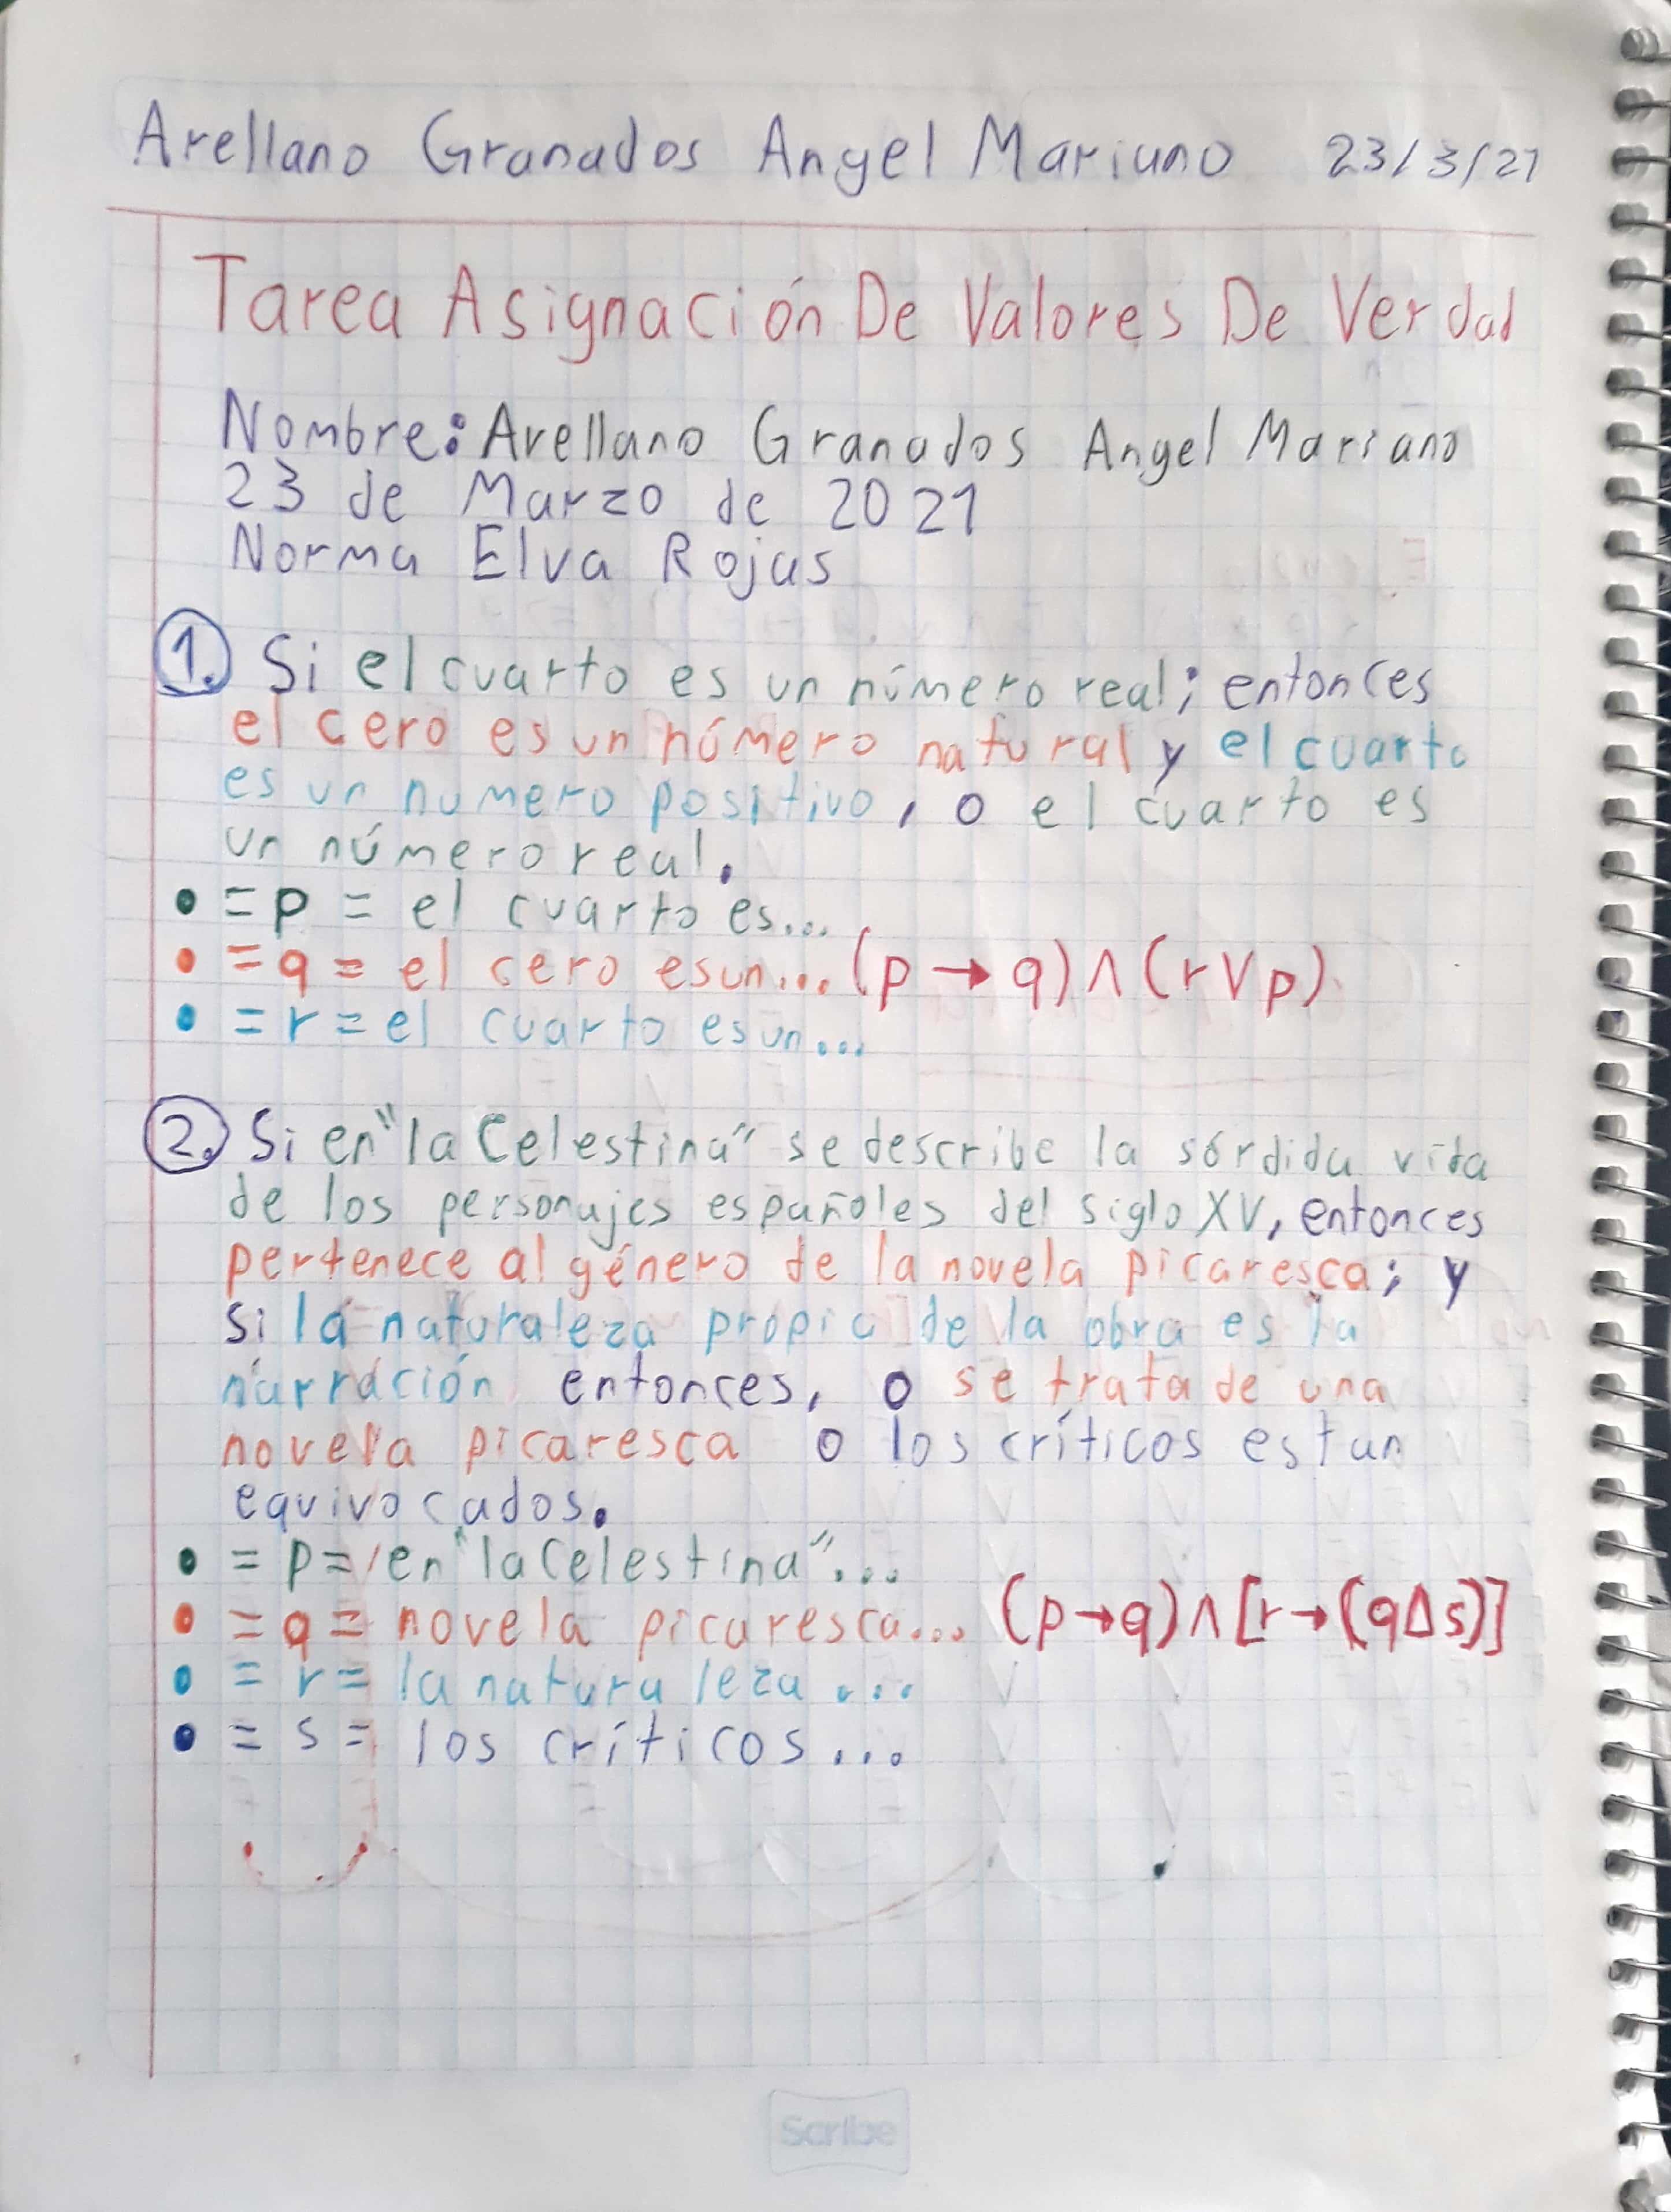 Arellano Granados Angel Mariano 23/3/21
Tarea Asignación De Valores De Verdad
Nombre: Arellano Granados Angel Mariano
23 de Marzo de 2021
Norma Elva Rojas
1. Si el cuarto es un número real; entonces
el cero es un número natural y el cuarto
es un numero positivo, o el cuarto es
un número real.
• = p = el cuarto es...
• = q = el cero es un... (p → q) ∧ (r ∨ p)
• = r = el cuarto es un...
2. Si en "la Celestina" se describe la sórdida vida
de los personajes españoles del siglo XV, entonces
pertenece al género de la novela picaresca; y
si la naturaleza propia de la obra es la
narración entonces, o se trata de una
novela picaresca o los críticos estan
equivocados.
• = p = en "la Celestina"...
• = q = novela picaresca... (p → q) ∧ [r → (q Δ s)]
• = r = la naturaleza...
• = s = los críticos...
Scribe